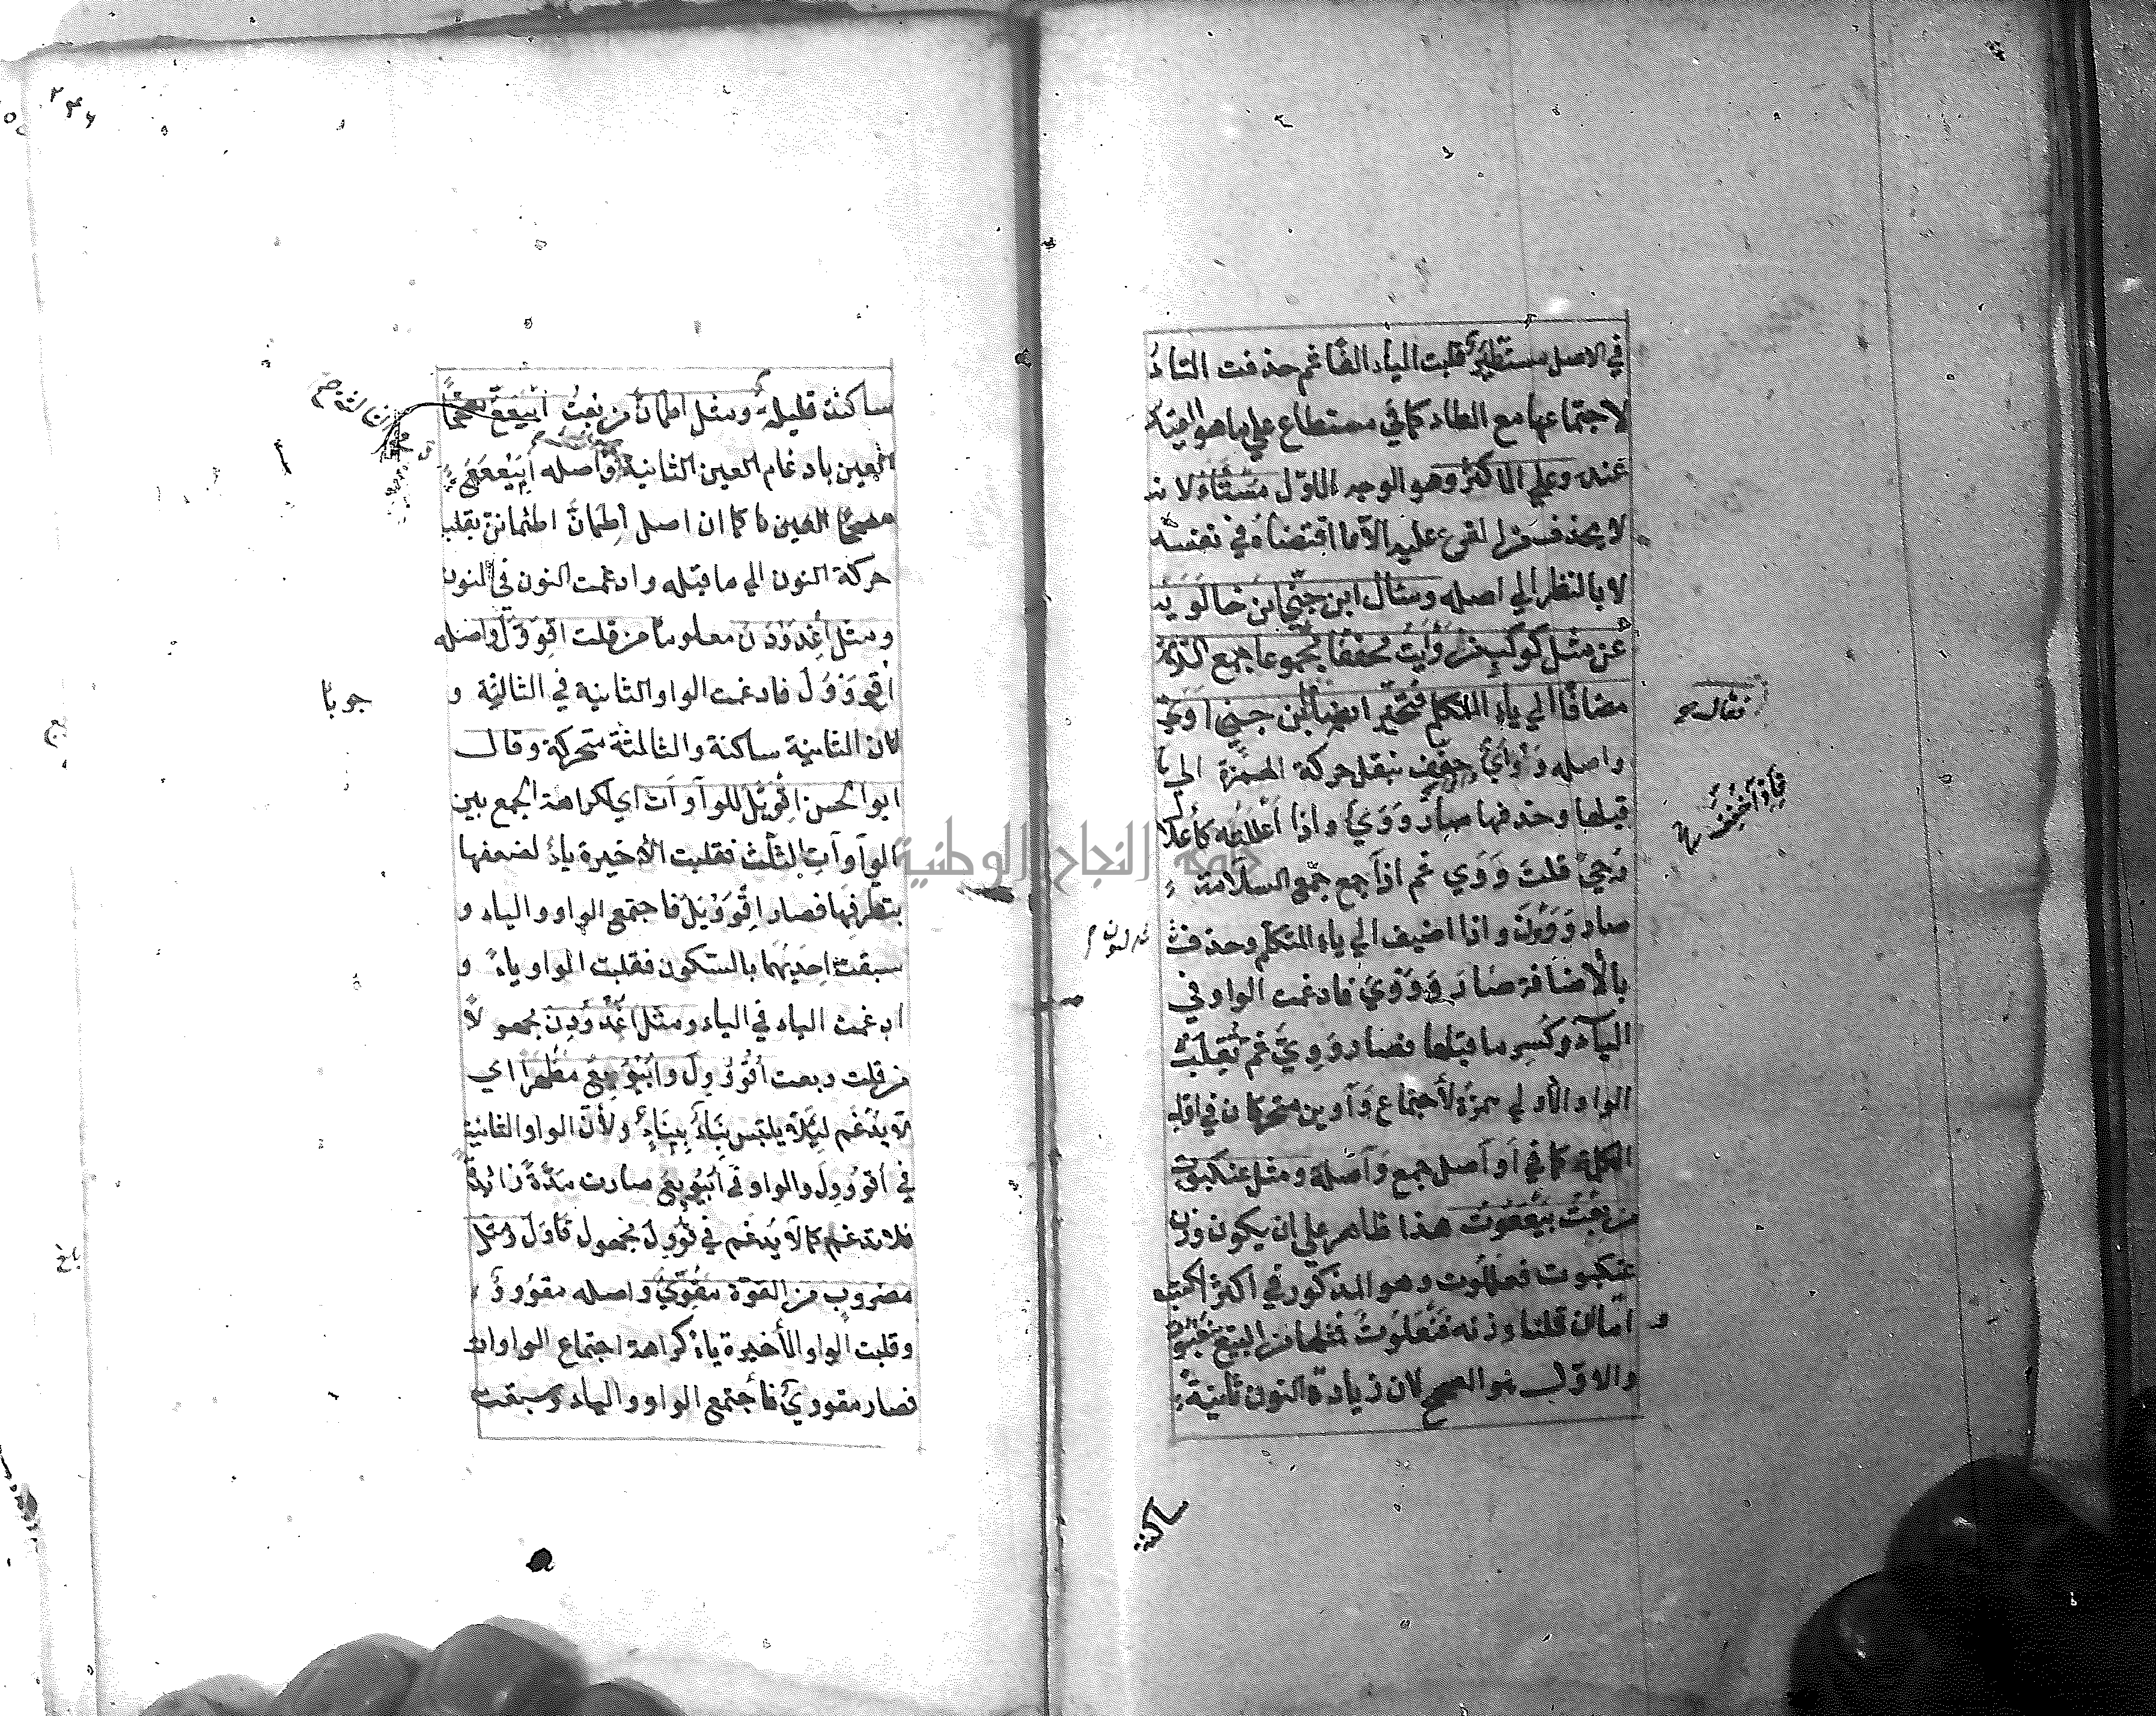 في الاصل مستطير قلبت الياء الفا ثم حذفت التاء
لاجتماعها مع الطاء كما في مسطاع على ما هو القياس
عنده وعلى الاكثر وهو الوجه الاول مستاء لانه
لا يحذف من الفرع عليه الا ما اقتضاه في نفسه
لا بالنظر الى اصله وسال ابن جني ابن خالويه
عن مثل كوكب من وَأَيْت مخففا مجموعا جمع السلامة
مضافا الى ياء المتكلم فتحير ايضا ابن جني اَوَيّ
واصله وَوْأَي خفف بنقل حركة الهمزة الى ما
قبلها وحذفها صار وَوَي واذا اعللته كاعلال
رحي قلت وَوَي ثم اذا جمع جمع السلامة
صار وَوَوْنَ واذا اضيف الى ياء المتكلم وحذفت
بالأضافة صار وَوَوْيَ فادغمت الواو في
الياء وكسر ما قبلها فصار وَوِيَّ ثم تقلب
الواو الاولى همزة لأجتماع وَاوين متحركان في اول
الكلمة كما في اَوَاصل جمع وَاصلة ومثل عنكبوت
من بعت بَيْعَعُوت هذا ظاهر على ان يكون وزن
عنكبوت فعللوت وهو المذكور في اكثر الكتب
و اما ان قلنا وزنه فَنْعَلُوتٌ فمثلها من البيع
والاول هو الصحيح لان زيادة النون ثانية
فقال صح
النون
ساكنة
٢٣٤
ساكنة قليلة ومثل اطمأن من بعت اِبْيَعَعَّ مصححا
العين بادغام العين الثانية واصله اِبْيَعْعَعَ
مصححا العين كما كان اصل اِطمأنَّ اطمأنن بقلب
حركة النون الى ما قبله وادغمت النون في النون
ومثل اُغدَوْدَن معلوما من قلت اقْوَوَّل واصله
اقْوَوْوَل فادغمت الواو الثانية في الثالثة و
جوبا
لان الثانية ساكنة والثالثة متحركة وقال
ابو الحسن اقْوَيَّل للوَاوَات اي لكراهة الجمع بين
الوَاوَاتِ الثلث فقلبت الأخيرة ياءً لضعفها
بتطرفها فصار اِقْوَوْيَلَ فاجتمع الواو والياء و
سبقت احديهما بالسكون فقلبت الواو ياءً و
ادغمت الياء في الياء ومثل اُغْدُودِنَ مجهولاً
من قلت وبعت اُقْوُووِلَ واُبْيُويِعَ مُظْهَرًا اي
لا يدغم لِئَلَّا يلتبس بِنَاءٌ بِبِنَاءٍ ولأن الواو الثانية
في اُقْوُووِلَ والواو في اُبْيُويِعَ صارت مَدَّةً زائدةً
فلا تدغم كما لا يُدغم في قُووِلَ مجهول قَاوَلَ ومثل
مضروب من القوة مَقْوِيٌّ واصله مقوُووٌ
وقلبت الواو الأخيرة ياءً كراهة اجتماع الواوات
فصار مقوُويٌ فاجتمع الواو والياء وسبقت